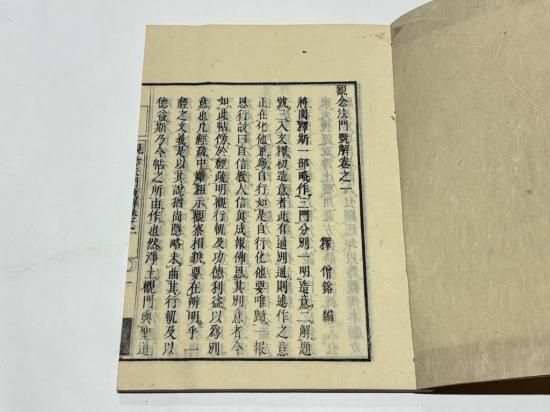 觀念法門甄解卷之一
釋僧鎔編
將開釋斯一部略作三門分別一明造意二解題
號三入文釋初造意者此有通別通則述作之意
正在化他兼爲自行如是自行化他要唯歸一報
恩行故曰自信教人信眞成報佛恩其別意者今
如此帖傍於經疏明觀行軌及功德利益以爲別
意也凡經疏中雖粗示觀察相貌要在辨明乎一
經之文義是以其說猶尚隱略未曲其行軌及以
德益斯乃今帖之所由作也然淨土觀門與聖道